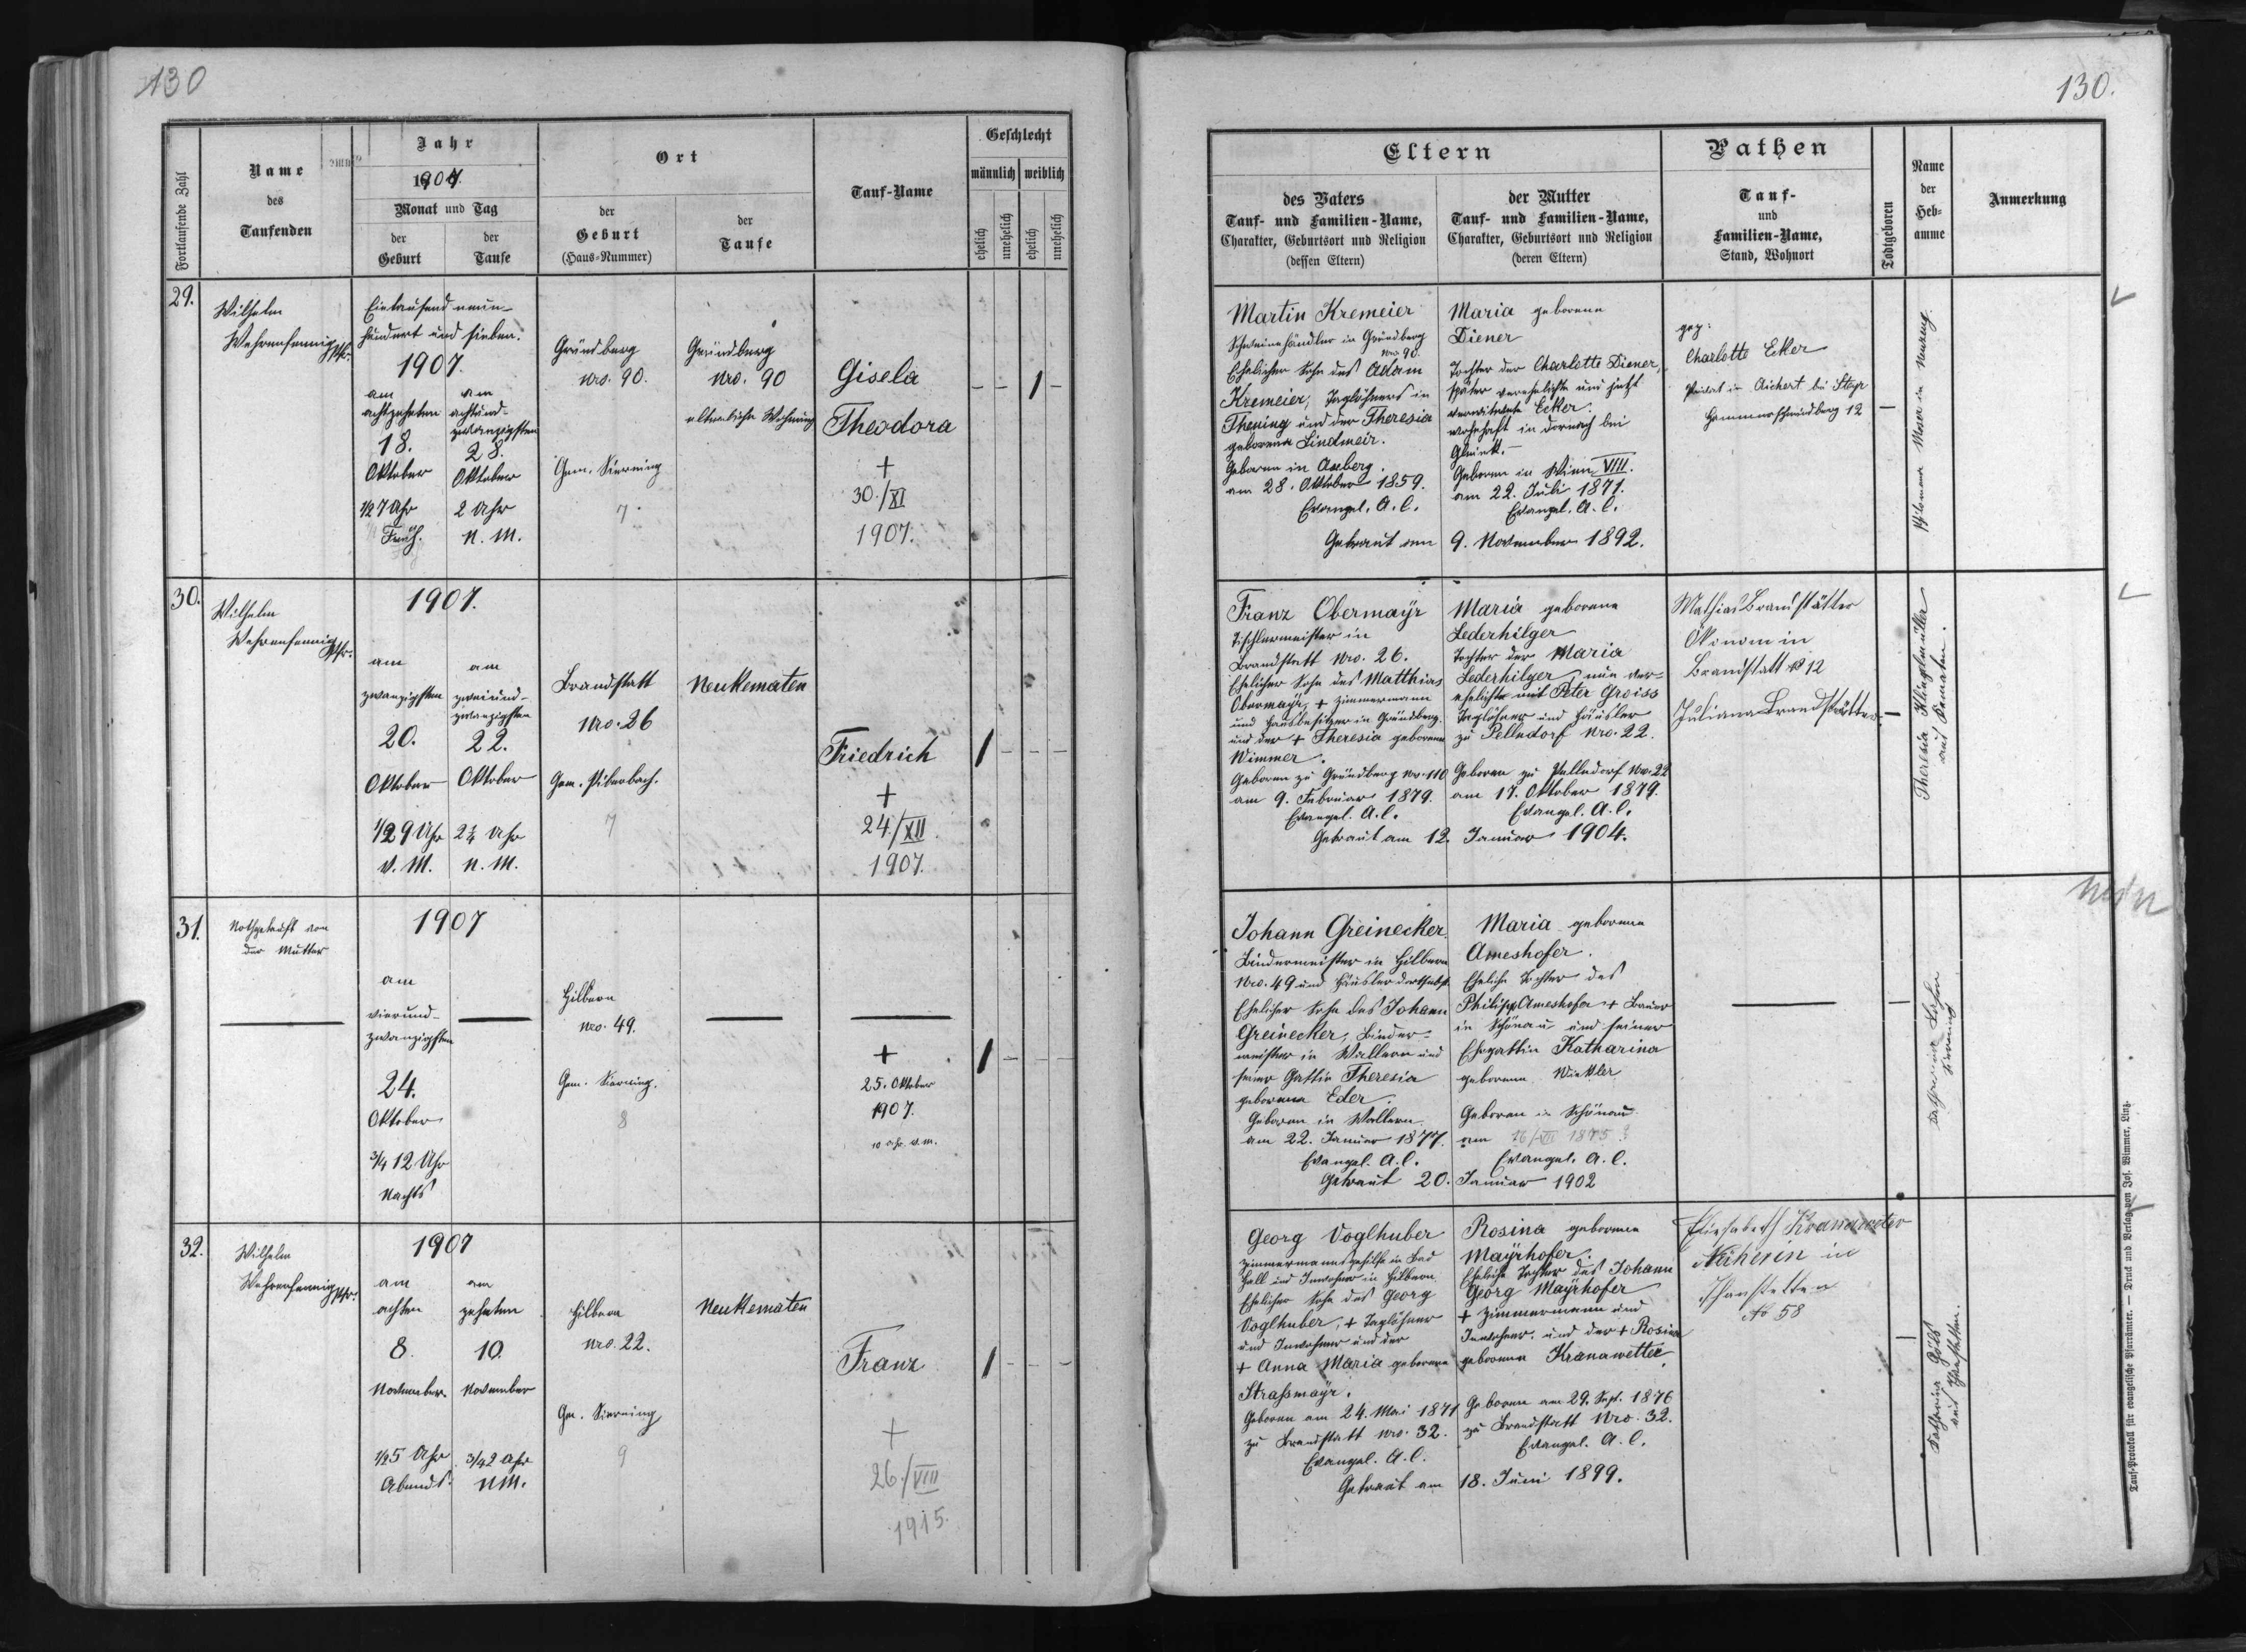 130
130.
Fortlaufende Zahl
Name
des
Taufenden
Jahr
1907.
Monat und Tag
der
Geburt
der
Taufe
Ort
der
Geburt
(Haus-Nummer)
der
Taufe
Tauf-Name
Geschlecht
männlich
weiblich
ehelich
unehelich
ehelich
unehelich
Eltern
des Vaters
Tauf- und Familien-Name,
Charakter, Geburtsort und Religion
(dessen Eltern)
der Mutter
Tauf- und Familien-Name,
Charakter, Geburtsort und Religion
(deren Eltern)
Pathen
Tauf-
und
Familien-Name,
Stand, Wohnort
Todtgeboren
Name
der
Heb-
amme
Anmerkung
29.
Wilhelm
Wehrenfennig Pfr.
Eintausend neun-
hundert und sieben.
1907.
am
achtzehnten
18.
Oktober
1/2 7 Uhr
Früh.
am
achtund-
zwanzigsten
28.
Oktober
2 Uhr
N. M.
Gründberg
Nro. 90.
Gem. Sierning
7
Gründberg
Nro. 90
elterliche Wohnung
Gisela
Theodora
+
30./XI
1907.
- - 1 -
Martin Kremeier
Schweinehändler in Gründberg
Nro 90.
Ehelicher Sohn des Adam
Kremeier, Taglöhners in
Thening und der Theresia
geborene Lindmeir.
Geboren in Axberg.
am 28. Oktober 1859.
Evangel. A. C.
Getraut am 9. November 1892.
Maria geborene
Diener
Tochter der Charlotte Diener,
später verehelichte und jetzt
verwitwete Ecker.
wohnhaft in Dornach bei
Gleink.
Geboren in Wien VIII.
am 22. Juli 1871.
Evangel. A. C.
gez:
Charlotte Ecker
Privat in Aichet bei Steyr
12
-
Philomena Moser in Neuzeug
30.
Wilhelm
Wehrenfennig Pfr.
1907.
am
zwanzigsten
20.
Oktober
1/2 9 Uhr
V. M.
am
zweiund-
zwanzigsten
22.
Oktober
2 1/4 Uhr
N. M.
Brandstatt
Nro. 26
Gem. Piberbach.
7
Neukematen
Friedrich
+
24./XII
1907.
1 - - -
Franz Obermayr
Tischlermeister in
Brandstatt Nro. 26.
Ehelicher Sohn des Matthias
Obermayr, + Zimmermann
und Hausbesitzer in Gründberg.
und der + Theresia geborene
Wimmer.
Geboren zu Gründberg Nr. 110
am 9. Februar 1879.
Evangel. A. C.
Getraut am 12. Januar 1904.
Maria geborene
Lederhilger
Tochter der Maria
Lederhilger, nun ver-
ehelichte mit Peter Groiss
Taglöhner und Häusler
zu Pellndorf Nro. 22.
Geboren zu Pellndorf Nro. 22
am 17. Oktober 1879.
Evangel. A. C.
Mathias Brandstätter
Ökonom in
Brandstatt № 12
Juliana Brandstätter
-
Theresia Klinglmüller
aus Kematen.
31.
Nothgetauft von
der Mutter
1907
am
vierund-
zwanzigsten
24.
Oktober
3/4 12 Uhr
Nachts
Hilbern
Nro. 49.
Gem. Sierning.
8
+
25. Oktober
1907.
10 Uhr V. M.
1 - - -
Johann Greinecker.
Bindermeister in Hilbern
Nro. 49 und Häusler dortselbst.
Ehelicher Sohn des Johann
Greinecker, Binder-
meister in Wallern und
seiner Gattin Theresia
geborene Eder.
Geboren in Wallern.
am 22. Januar 1877.
Evangel. A. C.
Getraut 20. Januar 1902
Maria geborene
Ameshofer.
Eheliche Tochter des
Philipp Ameshofer + Bauer
in Schönau und seiner
Ehegattin Katharina
geborene Winkler
Geboren in Schönau
am 16/VII 1875 ?
Evangel. A. C.
Katharina
Sierning
32.
Wilhelm
Wehrenfennig Pfr.
1907
am
achten
8.
November
1/2 5 Uhr
Abends.
am
zehnten
10.
November
3/4 2 Uhr
N M.
Hilbern
Nro. 22.
Gm. Sierning
9
Neukematen
Franz
+
26./VIII
1915.
1 - - -
Georg Voglhuber
Zimmermannsgehilfe in Bad
Hall und Inwohner in Hilbern
Ehelicher Sohn des Georg
Voglhuber, + Taglöhner
und Inwohner und der
+ Anna Maria geborene
Straßmayr.
Geboren am 24. Mai 1871
zu Brandstatt Nro. 32.
Evangel. A. C.
Getraut am 18. Juni 1899.
Rosina geborene
Mayrhofer.
Eheliche Tochter des Johann
Georg Mayrhofer
+ Zimmermann und
Inwohner. und der + Rosina
geborene Kranawetter,
Geboren am 29. Sept. 1876
zu Brandstatt Nro. 32.
Evangel. A. C.
Elisabeth Kranawetter
Näherin in
Pfarrstetten
№ 58
-
Katharina
aus
Tauf-Protokoll für evangelische Pfarrämter. — Druck und Verlag von Jos. Wimmer, Linz.